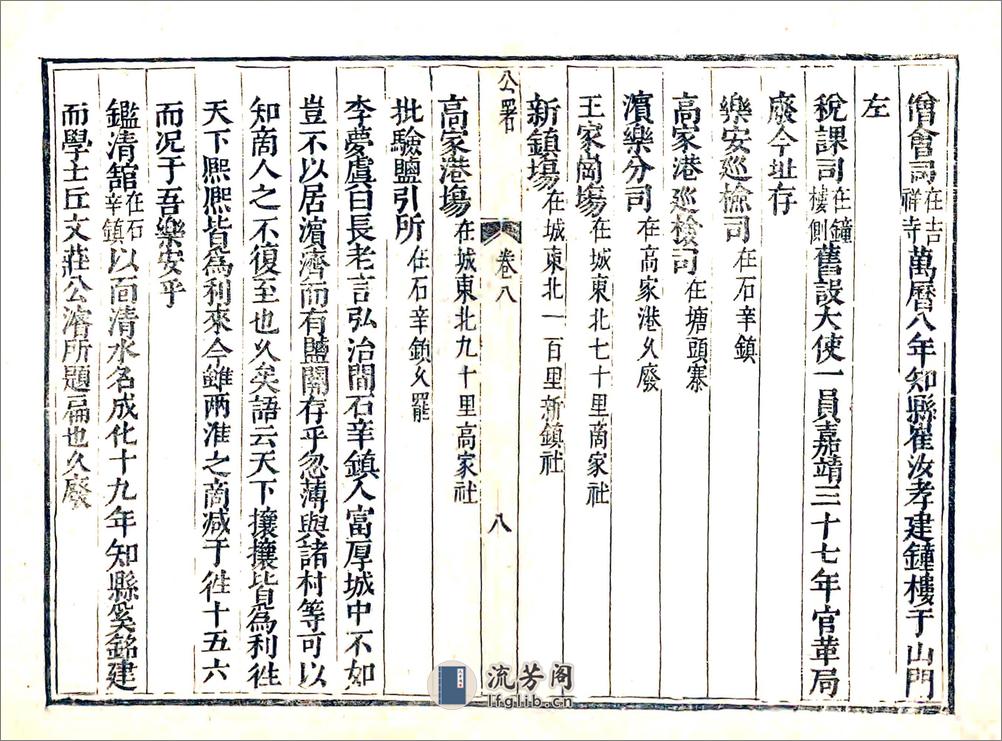 僧會司在吉祥寺萬曆八年知縣崔汝孝建鐘樓于山門
左
稅課司在鐘樓側舊設大使一員嘉靖三十七年官革局
廢今址存
樂安巡檢司在石辛鎮
高家港巡檢司在塘頭寨
濱樂分司在高家港久廢
王家崗塲在城東北七十里商家社
新鎮塲在城東北一百里新鎮社
公署 卷八 八
高家港塲在城東北九十里高家社
批驗鹽引所在石辛鎮久罷
李夢虞曰長老言弘治間石辛鎮人富厚城中不如
豈不以居濱濟而有鹽關存乎忽薄與諸村等可以
知商人之不復至也久矣語云天下攘攘皆為利徃
天下熙熙皆為利來今雖兩淮之商减于徃十五六
而况于吾樂安乎
鑑清舘在石辛鎮以面清水名成化十九年知縣奚銘建
而學士丘文莊公濬所題扁也久廢
流芳阁
lfglib.cn